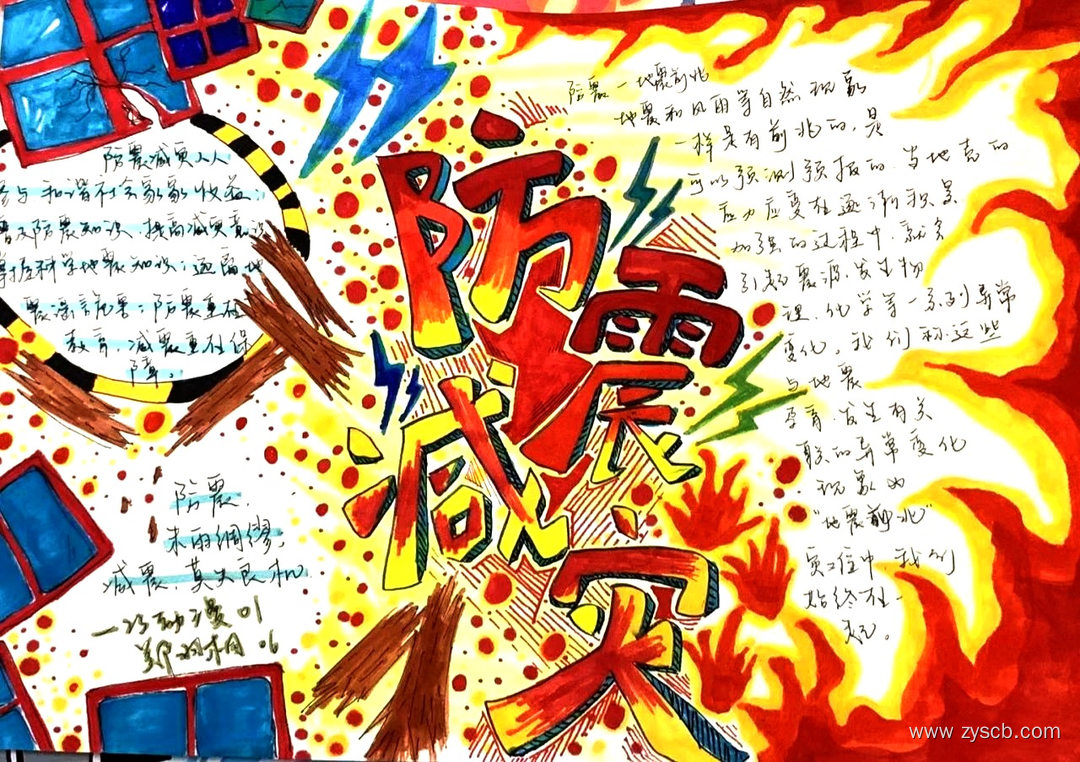 防震减灾
防震减灾人人
参与和谐社会家家收益；
普及防震知识，提高减灾意识
掌握科学地震知识；远隔地
震谣言
防震重在
教育，减震重在保
障。
防震，
未雨绸缪，
减震，莫失良机
动漫01
防震—地震前兆
地震和风雨等自然现象
一样是有前兆的，是
可以预测预报的，当地壳的
应力应变在逐渐积累
加强的过程中，就会
引起震源，发生物
理、化学等一系列异常
变化。我们称这些
与地震
孕育、发生有关
联的异常变化
现象为
"地震前兆"
灾难中，我们
始终在一
起。
www.zyscb.com